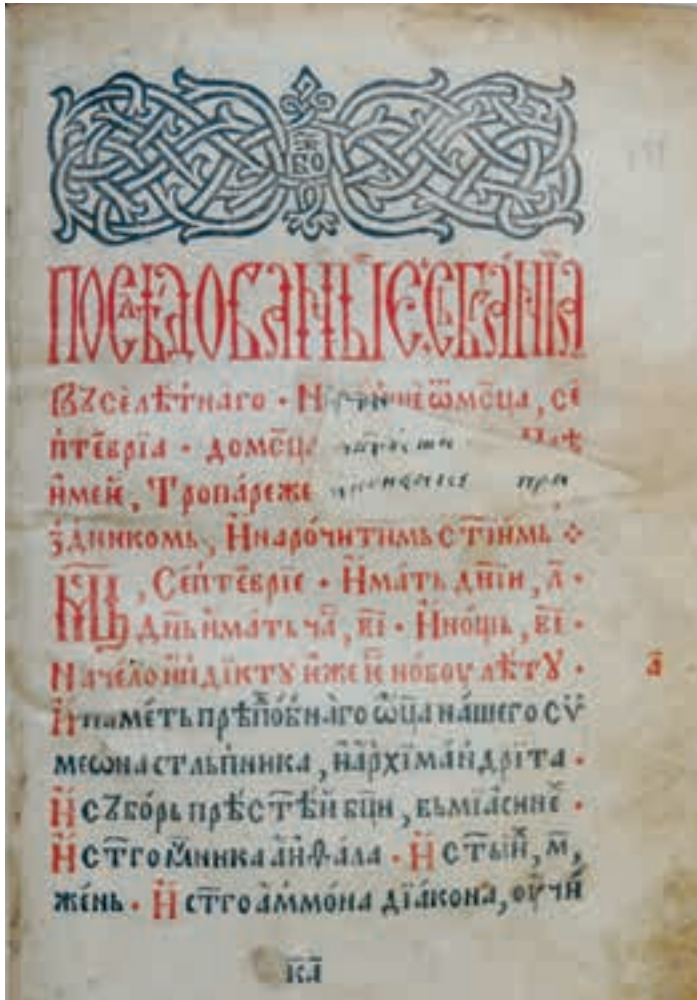 БО
ПОСЛѢДОВАНЫЄ СЪБРАНЇА
Въселѣтнаго · Н ѿмс̑ца, сє
птѐврїа · домс̑ца
и҆мєй, Тропарє жє при
зⷣникомь, И҆нарочитимь с҃тїимь ⁘
Мц҃ъ, Сєптє́врїє · И҆мать дн҃їи, л҃ ·
Дн҃ь и҆мать ча̑, в҃і · И҆нощь, в҃і ·
Начєло и҆нди́ктꙋ и҆жє є҆ новоу лѣтꙋ ·
а҃
И҆памєть прѣпⷣобнаго ѡ҆ц҃а нашєго сѵ
мєѡна стльпника, и҆а҆рхїмандрїта ·
И҆съборь прѣс҃тѣй бц҃и, вьмїасинⷯѣ ·
И҆с҃тго мⷱ҇нника а҆иѳала · И҆с҃тыйⷯ, м҃,
жєнь · И҆с҃тго а҆ммона дїакона, оу҆чи
к҃а